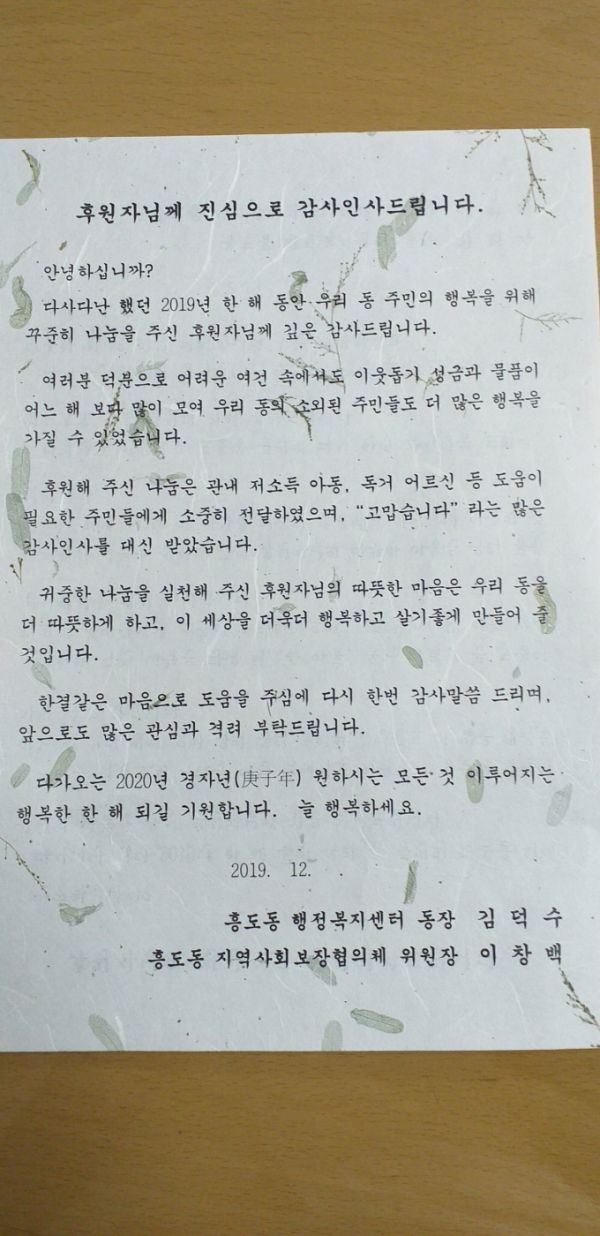 후원자님께 진심으로 감사인사드립니다.
안녕하십니까?
다사다난 했던 2019년 한 해 동안 우리 동 주민의 행복을 위해
꾸준히 나눔을 주신 후원자님께 깊은 감사드립니다.
여러분 덕분으로 어려운 여건 속에서도 이웃돕기 성금과 물품이
어느 해 보다 많이 모여 우리 동의 소외된 주민들도 더 많은 행복을
가질 수 있었습니다.
후원해 주신 나눔은 관내 저소득 아동, 독거 어르신 등 도움이
필요한 주민들에게 소중히 전달하였으며, “고맙습니다” 라는 많은
감사인사를 대신 받았습니다.
귀중한 나눔을 실천해 주신 후원자님의 따뜻한 마음은 우리 동을
더 따뜻하게 하고, 이 세상을 더욱더 행복하고 살기좋게 만들어 줄
것입니다.
한결같은 마음으로 도움을 주심에 다시 한번 감사말씀 드리며,
앞으로도 많은 관심과 격려 부탁드립니다.
다가오는 2020년 경자년(庚子年) 원하시는 모든 것 이루어지는
행복한 한 해 되길 기원합니다. 늘 행복하세요.
2019. 12.
흥도동 행정복지센터 동장 김 덕 수
흥도동 지역사회보장협의체 위원장 이 창 백